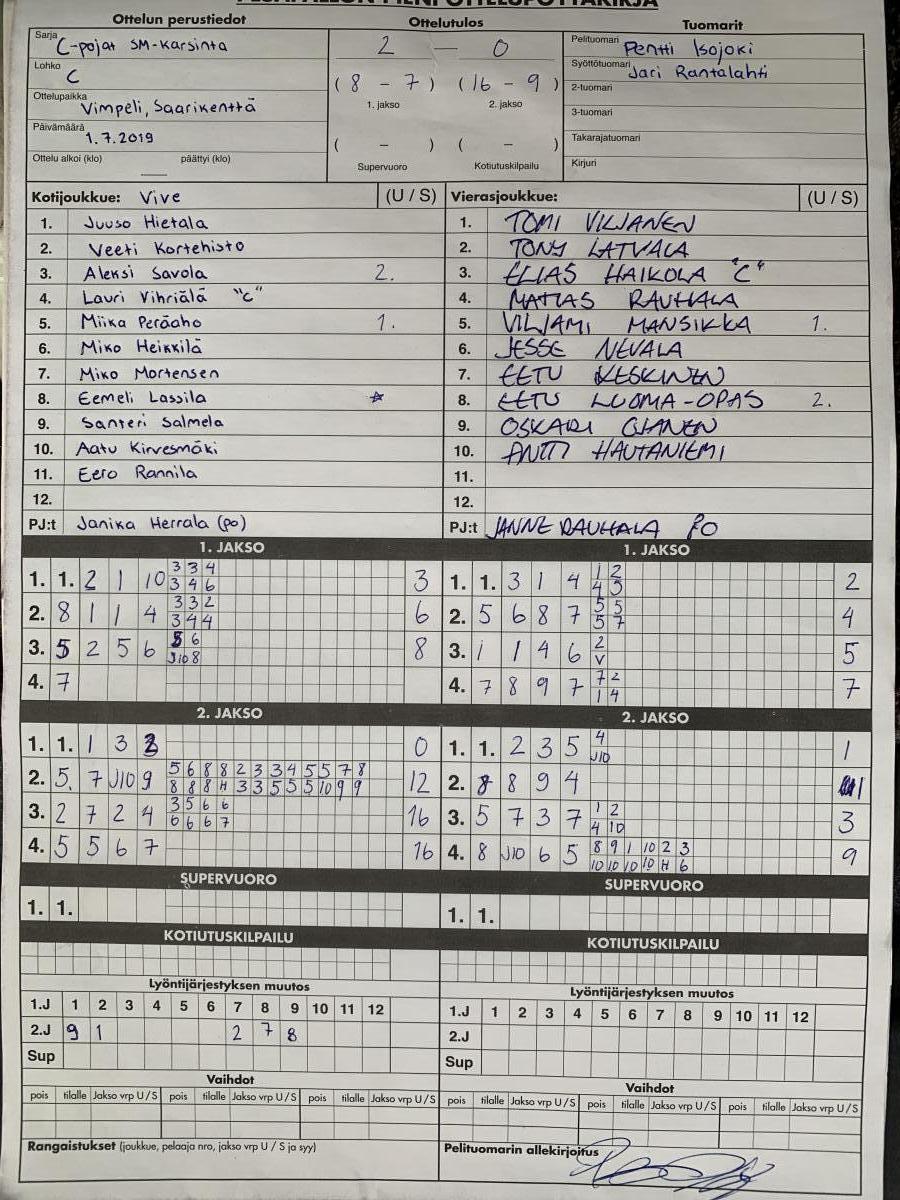 PESÄPALLON PIENI OTTELUPÖYTÄKIRJA
Ottelun perustiedot
Sarja C-pojat SM-Karsinta
Lohko C
Ottelupaikka Vimpeli, Saarikenttä
Päivämäärä 1.7.2019
Ottelu alkoi (klo) päättyi (klo)
Ottelutulos
2 – 0
(8 – 7) (16 – 9)
1. jakso 2. jakso
( – ) ( – )
Supervuoro Kotiutuskilpailu
Tuomarit
Pelituomari Pentti Isojoki
Syöttötuomari Jari Rantalahti
2-tuomari
3-tuomari
Takarajatuomari
Kirjuri
Kotijoukkue: Vive (U / S)
1. Juuso Hietala
2. Veeti Kortehisto
3. Aleksi Savola 2.
4. Lauri Vihriälä "C"
5. Miika Peräaho 1.
6. Miko Heikkilä
7. Miko Mortensen
8. Eemeli Lassila
9. Santeri Salmela
10. Aatu Kirvesmäki
11. Eero Rannila
12.
PJ:t Janika Herrala (po)
Vierasjoukkue: (U / S)
1. TOMI VILJANEN
2. TONY LATVALA
3. ELIAS HAIKOLA "C"
4. MATIAS RAUHALA
5. VILJAMI MANSIKKA 1.
6. JESSE NEVALA
7. EETU KESKINEN
8. EETU LUOMA-OPAS 2.
9. OSKARI OJANEN
10. ANTTI HAUTANIEMI
11.
12.
PJ:t JANNE RAUHALA PO
1. JAKSO
1. 1. 2 1 10 3 3 4 3
3 4 6
2. 8 1 1 4 3 3 2 6
3 4 4
3. 5 2 5 6 5 6 8
J10 8
4. 7
2. JAKSO
1. 1. 1 3 2 0
2. 5. 7 J10 9 5 6 8 8 2 3 3 4 5 5 7 8 12
8 8 8 H 3 3 5 5 5 10 9 9
3. 2 7 2 4 3 5 6 6 16
6 6 6 7
4. 5 5 6 7 16
SUPERVUORO
1. 1.
KOTIUTUSKILPAILU
Lyöntijärjestyksen muutos
1.J 1 2 3 4 5 6 7 8 9 10 11 12
2.J 9 1 2 7 8
Sup
Vaihdot
pois tilalle Jakso vrp U / S pois tilalle Jakso vrp U / S pois tilalle Jakso vrp U / S
Rangaistukset (joukkue, pelaaja nro, jakso vrp U / S ja syy)
1. JAKSO
1. 1. 3 1 4 1 2 2
4 5
2. 5 6 8 7 5 5 4
5 7
3. 1 1 4 6 2 5
V
4. 7 8 9 7 7 2 7
1 4
2. JAKSO
1. 1. 2 3 5 4 1
J10
2. 8 8 9 4 1
3. 5 7 3 7 1 2 3
4 10
4. 8 J10 6 5 8 9 1 10 2 3 9
10 10 10 10 H 6
SUPERVUORO
1. 1.
KOTIUTUSKILPAILU
Lyöntijärjestyksen muutos
1.J 1 2 3 4 5 6 7 8 9 10 11 12
2.J
Sup
Vaihdot
pois tilalle Jakso vrp U / S pois tilalle Jakso vrp U / S pois tilalle Jakso vrp U / S
Pelituomarin allekirjoitus